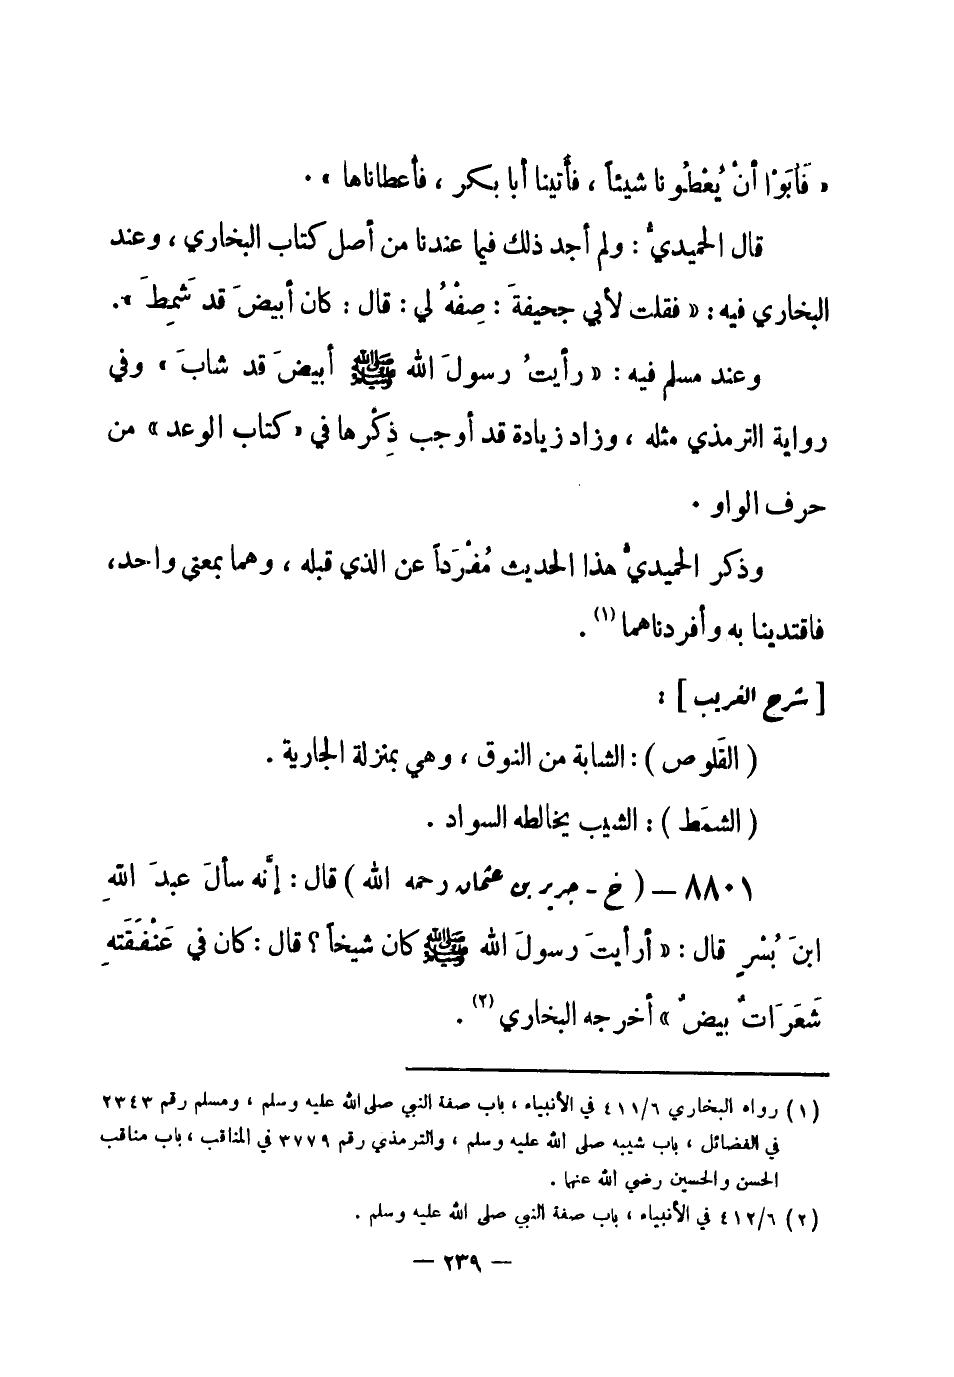 « فَأَبَوْا أنْ يُعْطُونا شيئاً ، فأتينا أبا بكر ، فأعطاناها » .
قال الحميديُّ : ولم أجد ذلك فيما عندنا من أصل كتاب البخاري ، وعند
البخاري فيه : « فقلت لأبي جحيفةَ : صِفْهُ لي : قال : كان أبيضَ قد شَمِطَ » .
وعند مسلم فيه : « رأيتُ رسولَ الله ﷺ أبيضَ قد شابَ » وفي
رواية الترمذي مثله ، وزاد زيادة قد أوجب ذِكْرها في « كتاب الوعد » من
حرف الواو .
وذكر الحميديُّ هذا الحديث مُفْرَداً عن الذي قبله ، وهما بمعنى واحد ،
فاقتدينا به وأفردناهما (١) .
[ شرح الغريب ] :
( القَلوص ) : الشابة من النوق ، وهي بمنزلة الجارية .
( الشمَط ) : الشيب يخالطه السواد .
٨٨٠١ – ( خ - جرير بن عثمان رحمه الله ) قال : إنَّه سألَ عبدَ اللهِ
ابنَ بُسْرٍ قال : « أرأيتَ رسولَ الله ﷺ كان شيخاً ؟ قال : كان في عَنْفَقَتهِ
شَعَرَاتٌ بيضٌ » أخرجه البخاري (٢) .
(١) رواه البخاري ٦/٤١١ في الأنبياء ، باب صفة النبي صلى الله عليه وسلم ، ومسلم رقم ٢٣٤٣
في الفضائل ، باب شيبه صلى الله عليه وسلم ، والترمذي رقم ٣٧٧٩ في المناقب ، باب مناقب
الحسن والحسين رضي الله عنهما .
(٢) ٦/٤١٢ في الأنبياء ، باب صفة النبي صلى الله عليه وسلم .
– ٢٣٩ –